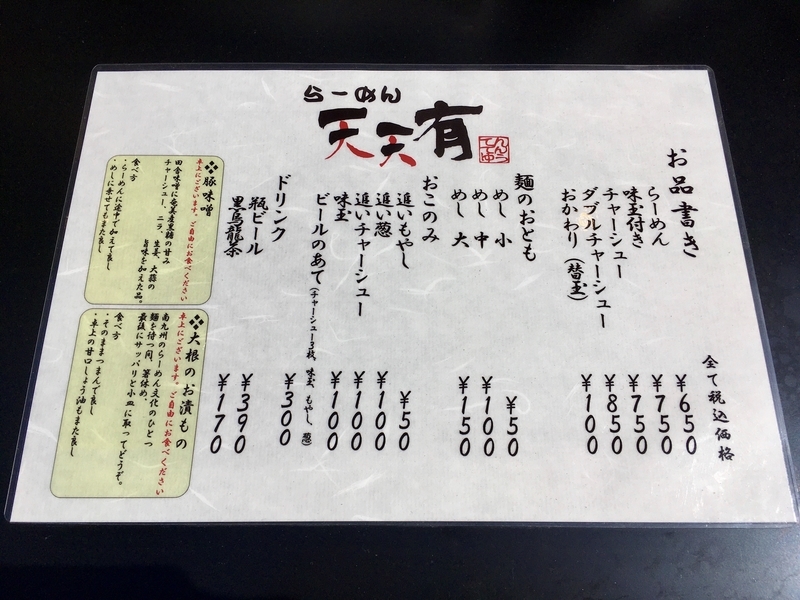 らーめん
天天有
てんてんゆう
お品書き
全て税込価格
らーめん ¥650
味玉付き ¥750
チャーシュー ¥750
ダブルチャーシュー ¥850
おかわり(替玉) ¥100
麺のおとも
めし 小 ¥50
めし 中 ¥100
めし 大 ¥150
おこのみ
追いもやし ¥50
追い葱 ¥100
追いチャーシュー ¥100
味玉 ¥100
ビールのあて(チャーシュー3枚、味玉、もやし、葱) ¥300
ドリンク
瓶ビール ¥390
黒烏龍茶 ¥170
豚味噌
卓上にございます。ご自由にお食べください
田舎味噌に奄美産黒糖の甘み
チャーシュー、ニラ、生姜、大蒜の
旨味を加えた品。
食べ方
・らーめんに途中で加えて良し
・めしに乗せてもまた良し
大根のお漬もの
卓上にございます。ご自由にお食べください
南九州のらーめん文化のひとつ
麺を待つ間、箸休め、
最後にサッパリと小皿に取ってどうぞ。
食べ方
・そのままつまんで良し
・卓上の甘口しょう油もまた良し